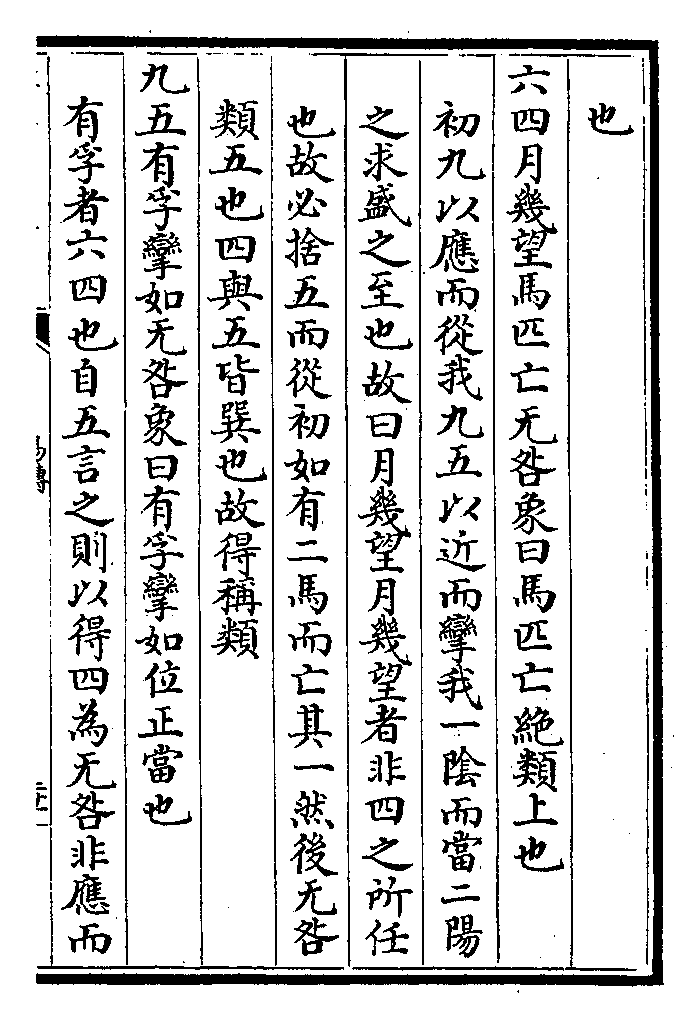 也
六四月幾望馬匹亡无咎象曰馬匹亡絶類上也
初九以應而從我九五以近而攣我一陰而當二陽
之求盛之至也故曰月幾望月幾望者非四之所任
也故必捨五而從初如有二馬而亡其一然後无咎
類五也四與五皆巽也故得稱類
九五有孚攣如无咎象曰有孚攣如位正當也
有孚者六四也自五言之則以得四為无咎非應而